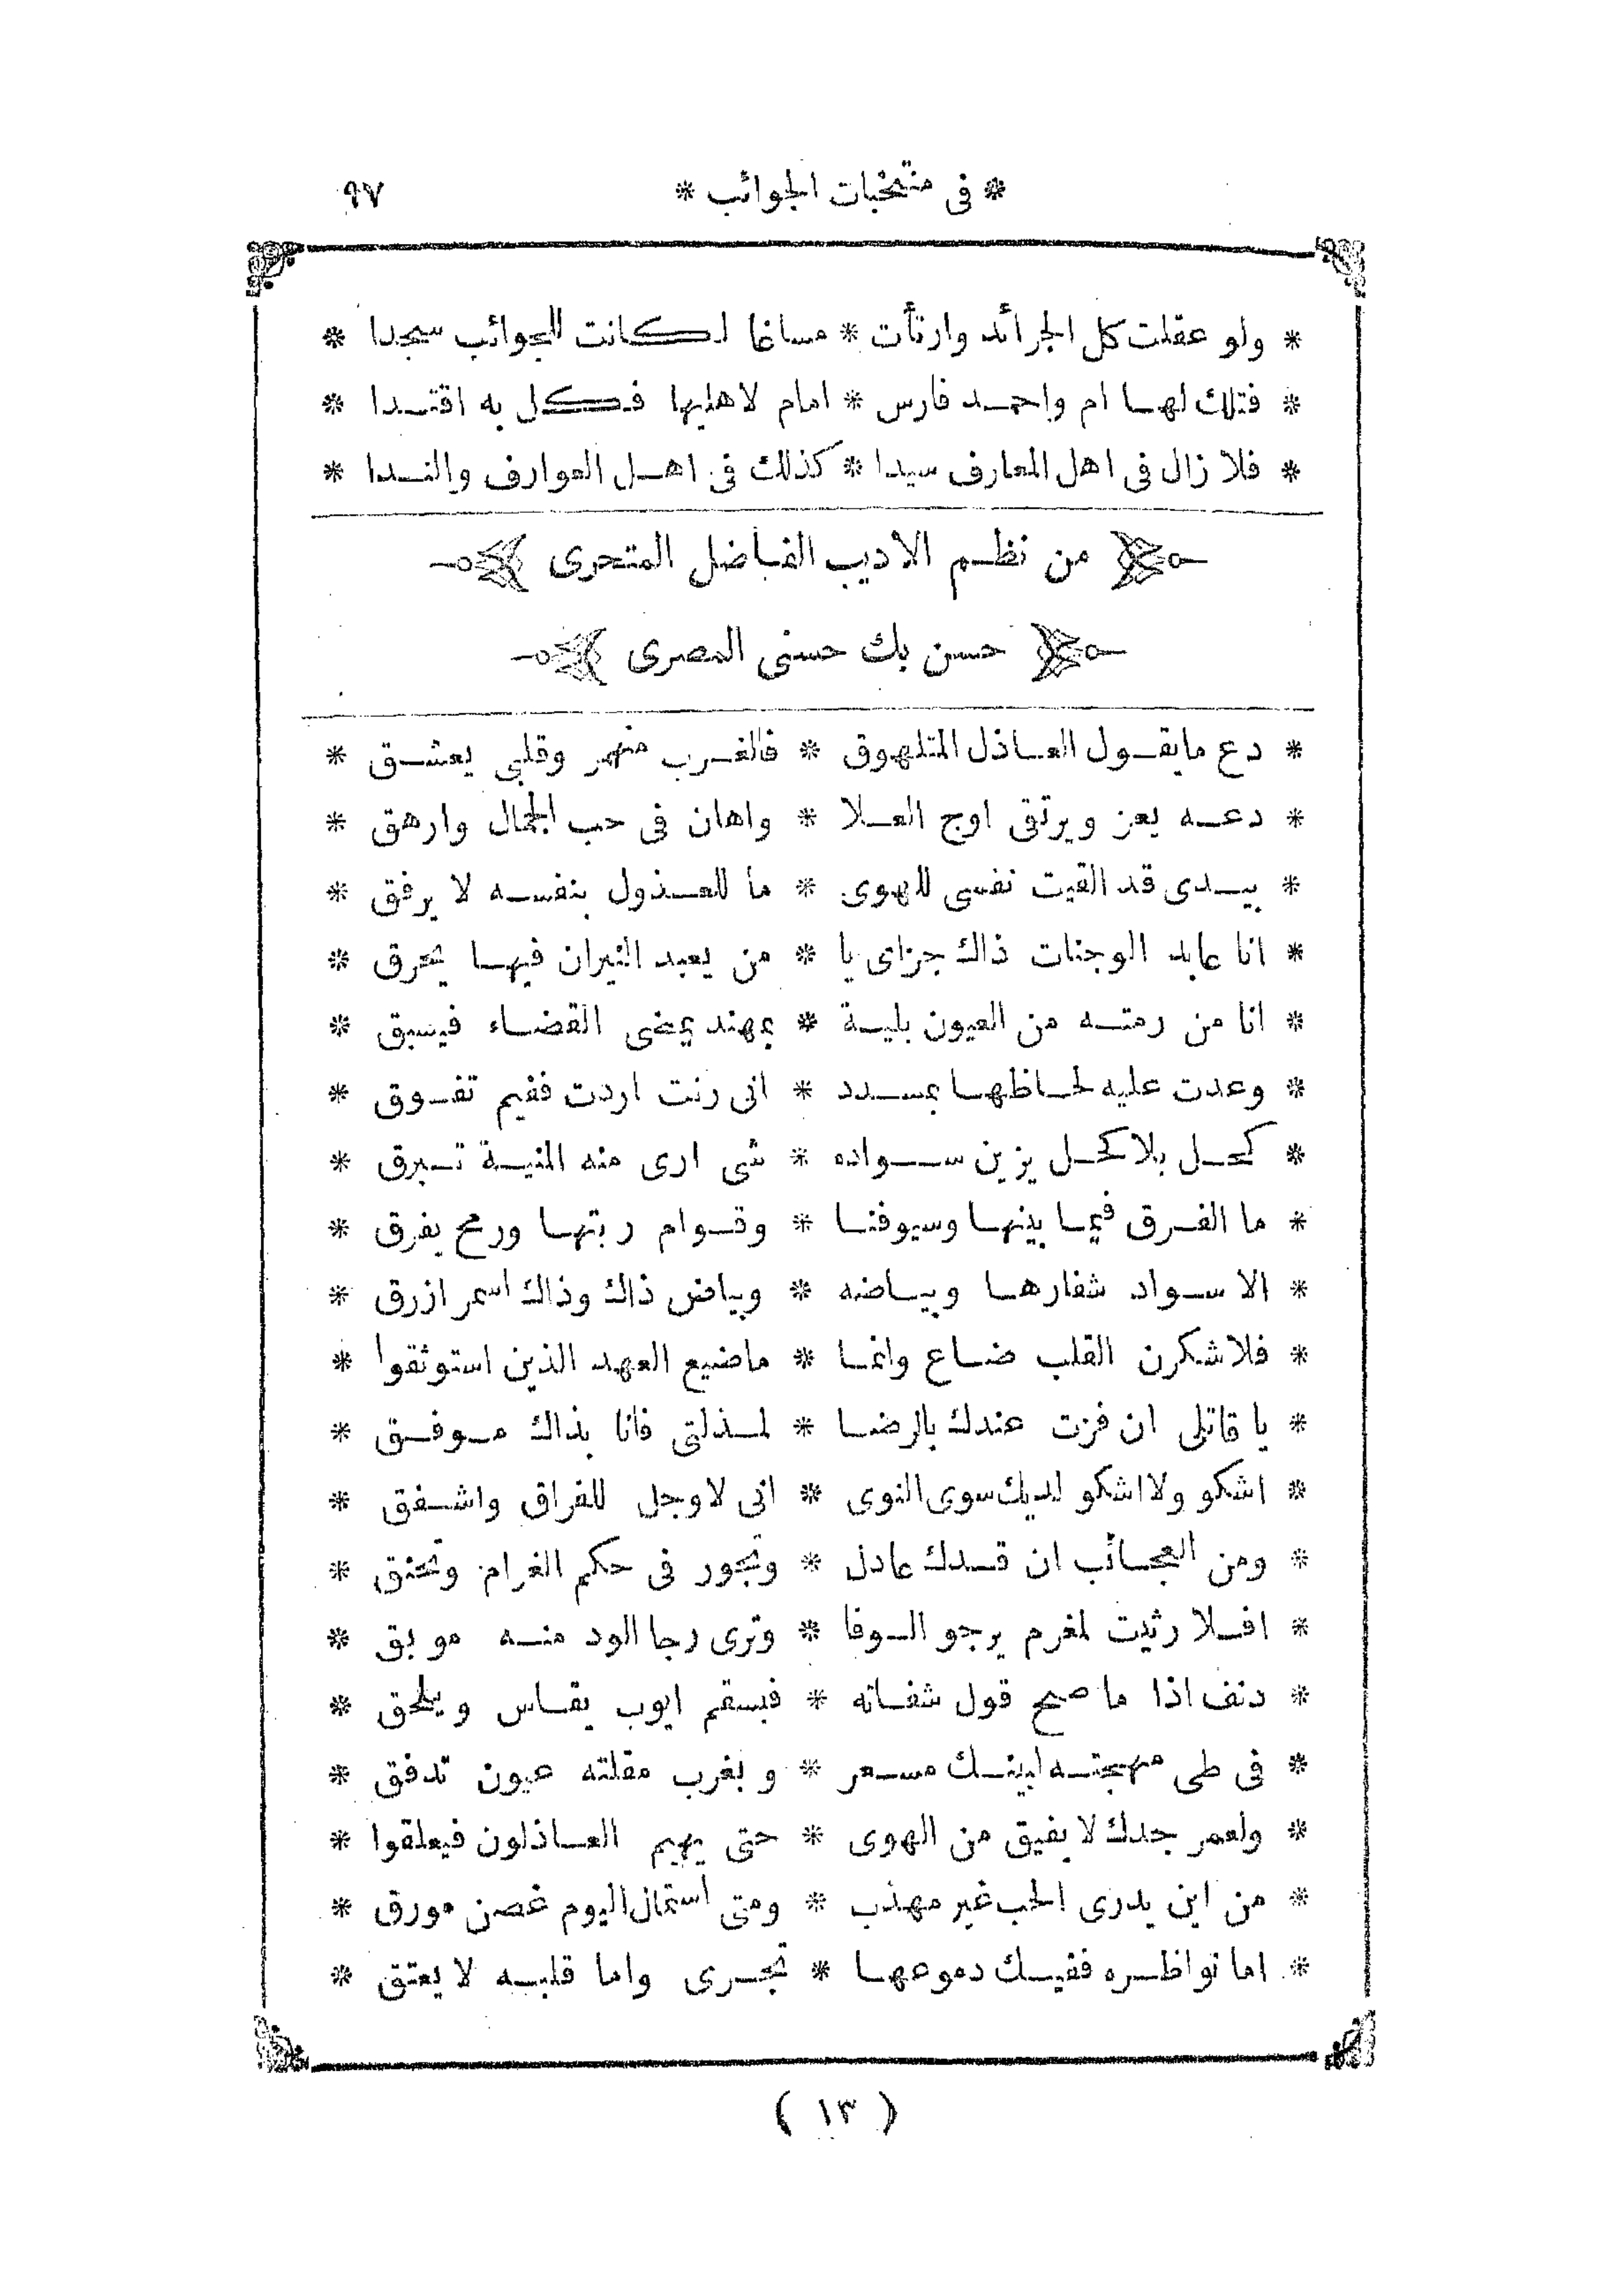 * فى منتخبات الجوائب * ٩٧
* ولو عقلت كل الجرائد وارتأت * مساغا لكانت للجوائب سجدا *
* فتلك لها ام واحمد فارس * امام لاهليها فكل به اقتدا *
* فلا زال فى اهل المعارف سيدا * كذلك فى اهل العوارف والندا *
من نظم الاديب الفاضل المتحرى
حسن بك حسنى المصرى
* دع مايقول العاذل المتلهوق * فالغرب منهم وقلبى يعشق *
* دعه يعز ويرتقى اوج العلا * واهان فى حب الجمال وارهق *
* بيدى قد القيت نفسى للهوى * ما للعذول بنفسه لا يرفق *
* انا عابد الوجنات ذاك جزاى يا * من يعبد النيران فيها يحرق *
* انا من رمته من العيون بلية * بمهند يمضى القضاء فيسبق *
* وعدت عليه لحاظها بمسدد * انى رنت اردت ففيم تفوق *
* كحل بلا كحل يزين سواده * شى ارى منه المنية تبرق *
* ما الفرق فيما بينها وسيوفنا * وقوام ربتها ورمح يفرق *
* الا سواد شفارها وبياضه * وبياض ذاك وذاك اسمر ازرق *
* فلاشكرن القلب ضاع وانما * ماضيع العهد الذين استوثقوا *
* يا قاتلى ان فزت عندك بالرضا * لمذلتى فانا بذاك موفق *
* اشكو ولا اشكو لديك سوى النوى * انى لاوجل للفراق واشفق *
* ومن العجائب ان قدك عادل * وتجور فى حكم الغرام وتحنق *
* افلا رثيت لمغرم يرجو الوفا * وترى رجا الود منه موبق *
* دنف اذا ما صح قول شفاته * فبسقم ايوب يقاس ويلحق *
* فى طى مهجته لبينك مسعر * وبغرب مقلته عيون تدفق *
* ولعمر جدك لا يفيق من الهوى * حتى يهيم العاذلون فيعلقوا *
* من اين يدرى الحب غير مهذب * ومتى استمال اليوم غصن مورق *
* اما نواظره ففيك دموعها * تجرى واما قلبه لا يعتق *
( ١٣ )